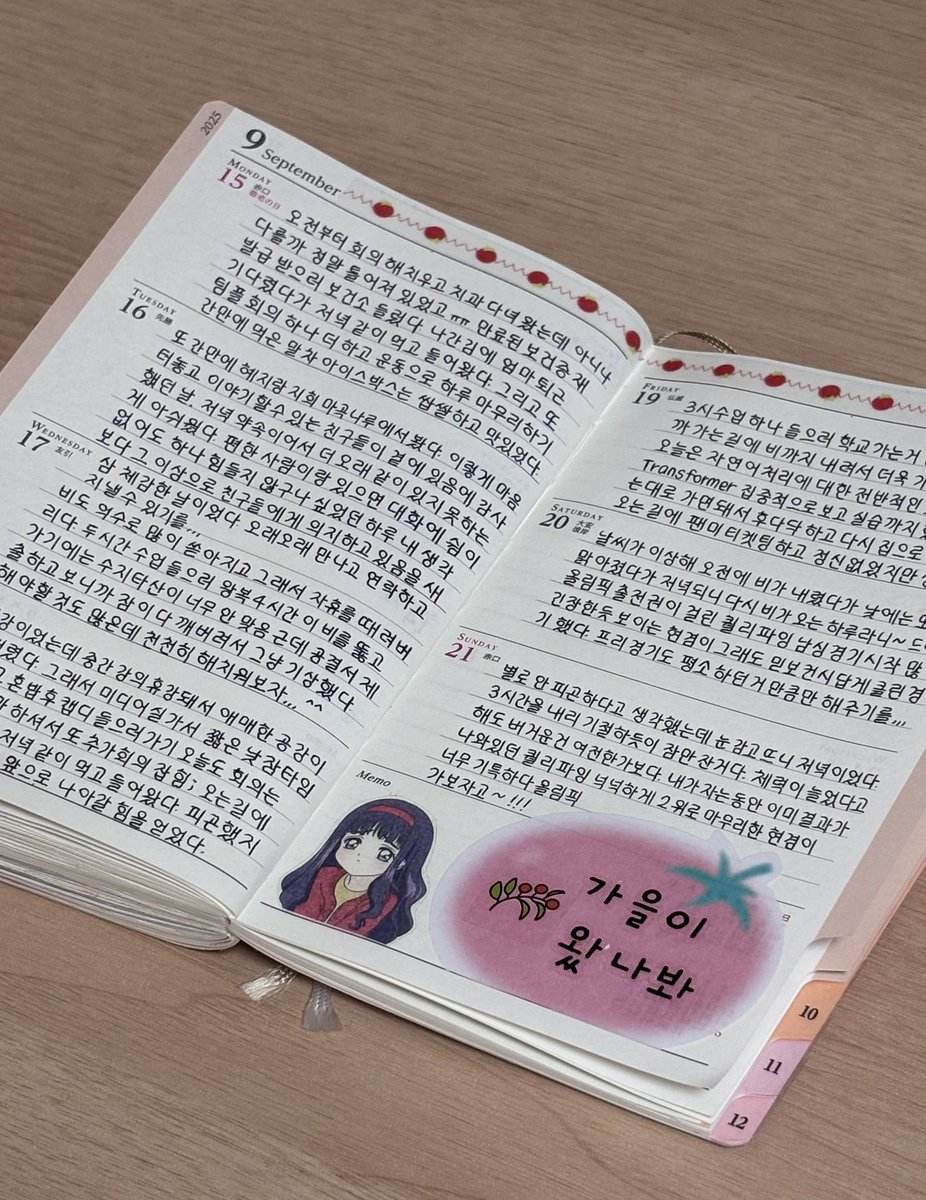 2025
9 September
MONDAY
15 赤口
敬老の日
오전부터 회의 해치우고 치과 다녀왔는데 아니나
다를까 정말 틀어져 있었고 ㅠㅠ 만료된 보건증 재
발급 받으러 보건소 들렀다. 나간김에 엄마 퇴근
기다렸다가 저녁 같이 먹고 들어왔다. 그리고 또
팀플 회의 하나 더 하고 운동으로 하루 마무리하기
간만에 먹은 말차 아이스박스는 쌉쌀하고 맛있었다.
TUESDAY
16 先勝
또 간만에 혜지랑 지회 마곡나루에서 봤다. 이렇게 마음
터놓고 이야기할 수 있는 친구들이 곁에 있음에 감사
했던 날. 저녁 약속이어서 더 오래 같이 있지 못하는
게 아쉬웠다. 편한 사람이랑 있으면 대화에 쉼이
없어도 하나 힘들지 않구나 싶었던 하루 내 생각
보다 그 이상으로 친구들에게 의지하고 있음을 새
삼 체감한 날이었다. 오래오래 만나고 연락하고
지낼 수 있기를...
WEDNESDAY
17 友引
비도 억수로 많이 쏟아지고 그래서 자휴를 때려버
리다. 두시간 수업 들으러 왕복 4시간 이 비를 뚫고
가기에는 수지타산이 너무 안 맞음 근데 공결서 제
출하고 보니까 잠이 다 깨버려서 그냥 기상했다.
해야할 것도 많은데 천천히 해치워보자... ^^
강이었는데 중간 강의 휴강돼서 애매한 공강이
그래서 미디어실가서 짧은 낮잠타임
혼밥 후 캔디 들으러 가기 오늘도 회의는
하셔서 또 추가회의 잡힘; 오는길에
저녁 같이 먹고 들어왔다. 피곤했지
앞으로 나아갈 힘을 얻었다.
FRIDAY
19 仏滅
3시 수업 하나 들으러 학교 가는거
까 가는길에 비까지 내려서 더욱
오늘은 자연어처리에 대한 전반적인
Transformer 집중적으로 보고 실습까지
는대로 가면 돼서 후다닥 하고 다시 집으로
오는길에 팬미 티켓팅하고 정신 없었지만
SATURDAY
20 大安
彼岸
날씨가 이상해 오전에 비가 내렸다가 낮에는 또
맑아졌다가 저녁되니 다시 비가 오는 하루라니~
올림픽 출전권이 걸린 퀄리파잉 남싱 경기 시작 많
긴장한듯 보이는 현겸이 그래도 믿보 컨시답게 클린 경
기 했다. 프리 경기도 평소 하던거 만큼만 해주기를...
SUNDAY
21 赤口
별로 안 피곤하다고 생각했는데 눈 감고 뜨니 저녁이었다
3시간을 내리 기절하듯이 잠만 잔거다. 체력이 늘었다고
해도 버거운건 여전한가보다. 내가 자는동안 이미 결과가
나와있던 퀄리파잉 넉넉하게 2위로 마무리한 현겸이
너무 기특하다 올림픽
가보자고 ~ !!!
Memo
가을이
왔나봐
10
11
12